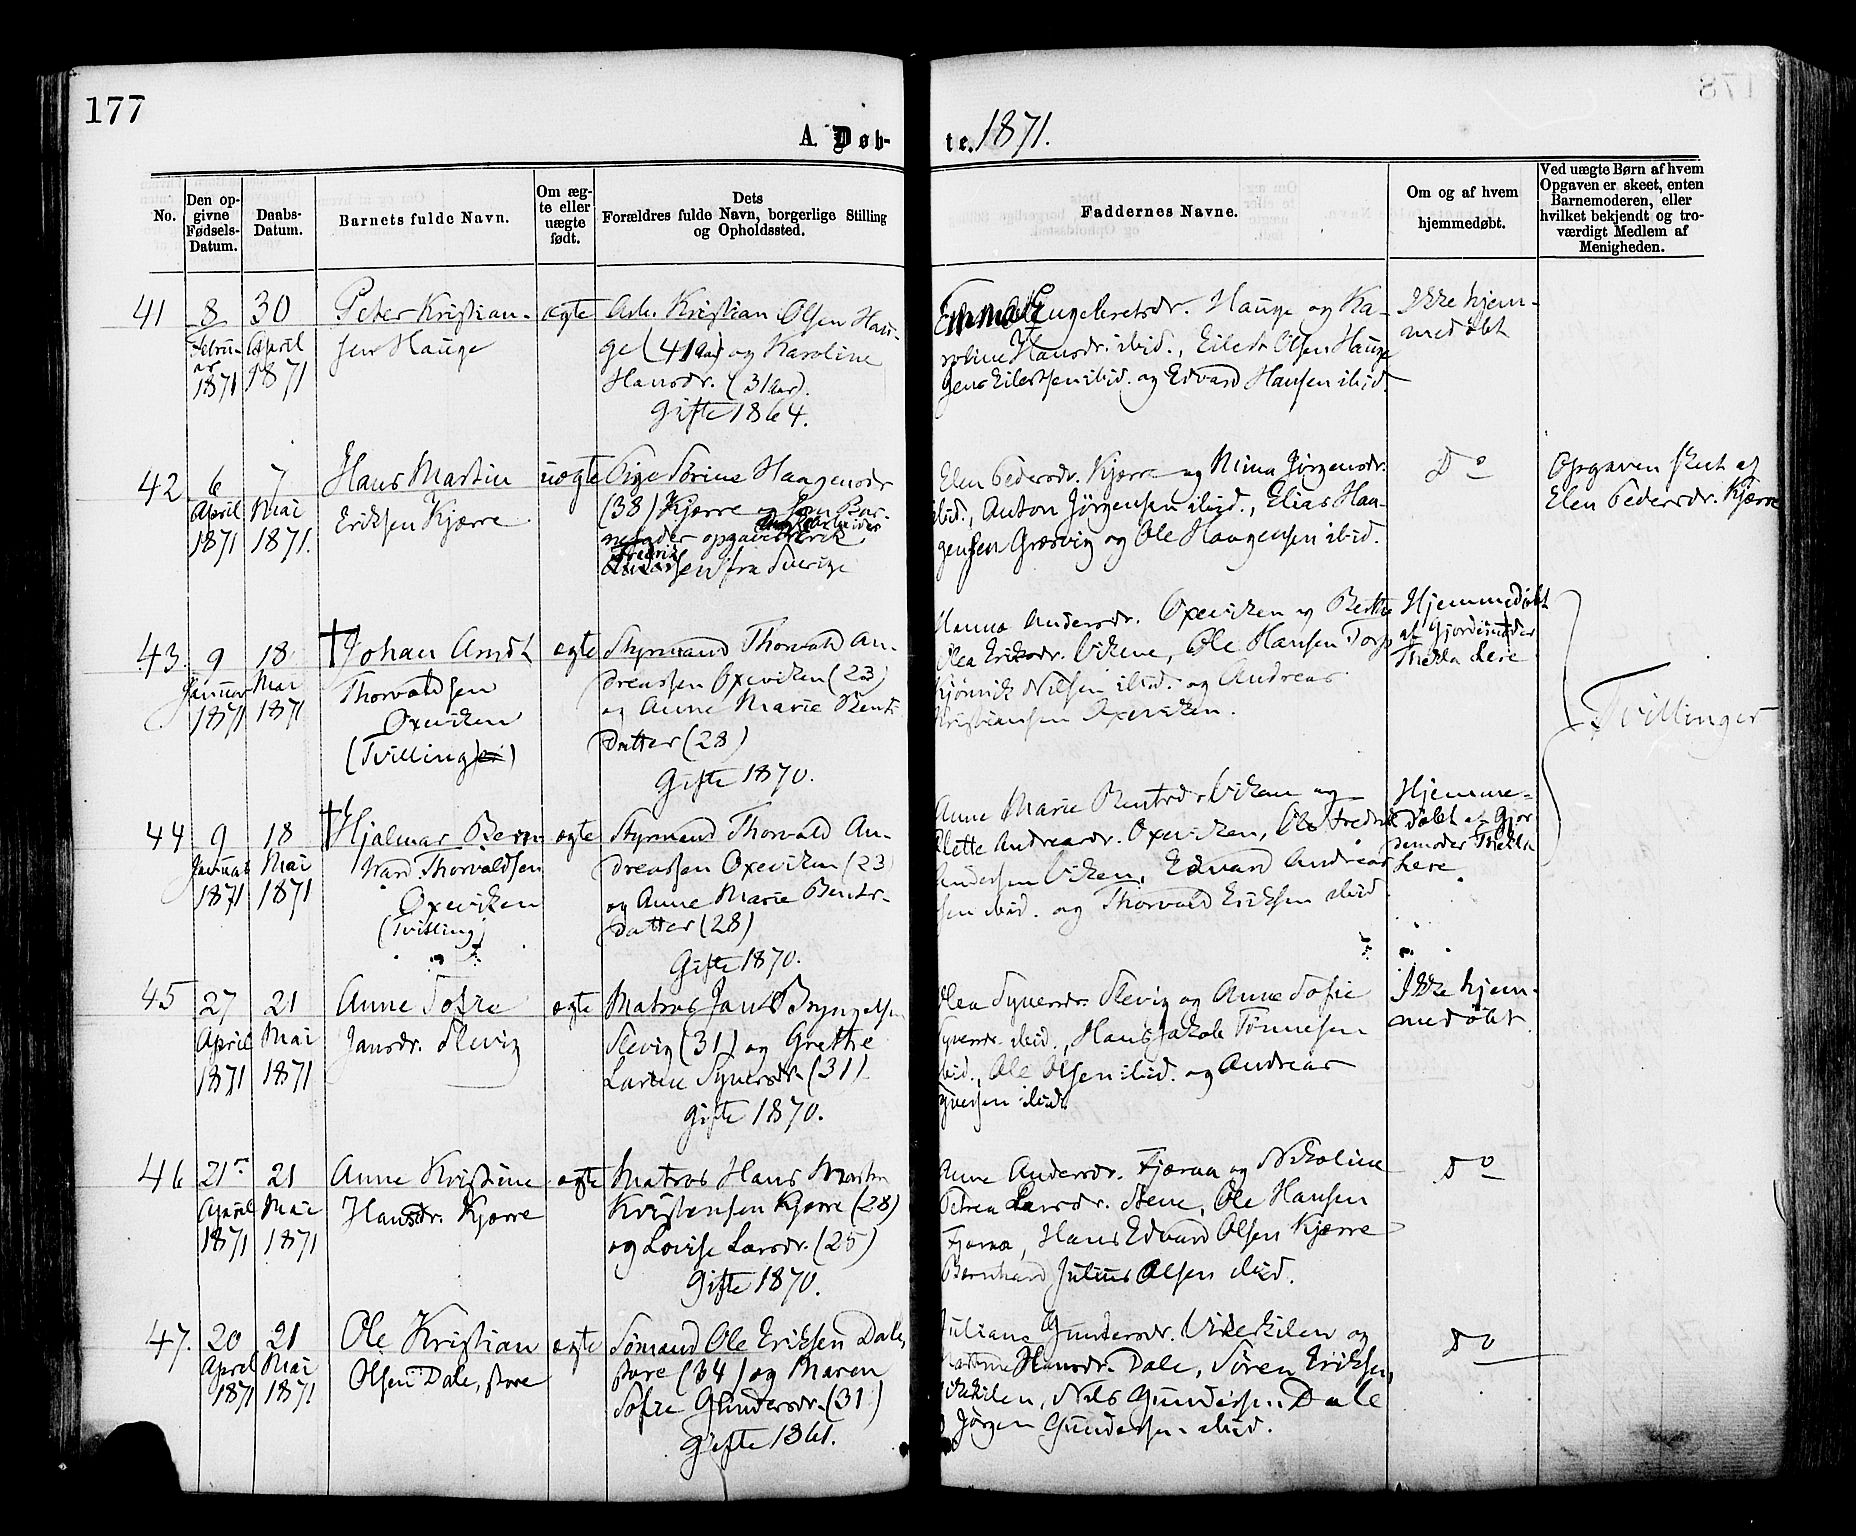 177
A. Døb-
te. 1871.
No.
Den op-
givne
Fødsels-
Datum.
Daabs-
Datum.
Barnets fulde Navn.
Om æg-
te eller
uægte
født.
Dets
Forældres fulde Navn, borgerlige Stilling
og Opholdssted.
Faddernes Navne.
Om og af hvem
hjemmedøbt.
Ved uægte Børn af hvem
Opgaven er skeet, enten
Barnemoderen, eller
hvilket bekjendt og tro-
værdigt Medlem af
Menigheden.
41
8
Februar
1871
30
April
1871
Peter Kristian-
sen Hauge
ægte
Arb. Kristian Olsen Hau-
ge (41 Aar) og Karoline
Hansdr. (31 Aar).
Gifte 1864.
Engebretsdr. Hauge og Ka-
roline Hansdr. ibid., Eilert Olsen Hauge
Jens Eilertsen ibid. og Edvard Hansen ibid
Ikke hjem-
medøbt
42
6
April
1871
7
Mai
1871.
Hans Martin
Eriksen Kjærre
uægte
Pige Sørine Haagensdr
(38) Kjærre og som Bar-
nefader opgivet Erik
Fredrik
fra Sverige
Elen Pedersdr. Kjærre og Mina Jørgensdr.
ibid., Anton Jørgensen ibid., Elias Haa-
gensen Græsvig og Ole Haagensen ibid.
Do
Opgaven skeet af
Elen Pedersdr. Kjærre
43.
9
Januar
1871
18
Mai
1871
† Johan Arndt
Thorvaldsen
Oxeviken
(Tvilling)
ægte
Styrmand Thorvald An-
dreassen Oxeviken (23)
og Anne Marie Bents-
datter (28)
Gifte 1870.
Hanna Andersdr. Oxeviken og Berthe
Olea Eriksdr. Vikene, Ole Hansen Torp
Nilsen ibid. og Andreas
Kristiansen Oxeviken.
Hjemmedøbt
af Gjordemoder
Thekla Lere
Tvillinger
44
9
Januar
1871
18
Mai
1871
† Hjalmar Bern
hard Thorvaldsen
Oxeviken
(Tvilling)
ægte
Styrmand Thorvald An-
dreassen Oxeviken (23
og Anne Marie Bents-
datter (28)
Gifte 1870.
Anne Marie Bentsdr. Viken og
Olette Andreasdr. Oxeviken, Ole Fredrik
Andersen Viken, Edvard Andreas-
sen ibid. og Thorvald Eriksen ibid.
Hjemme-
døbt af Gjor
demoder Thekla
Lere.
45
27
April
1871
21
Mai
1871
Anne Sofie
Jansdr. Slevig
ægte
Matros Jan Bryngelsen
Slevig (31) og Grethe
Larine Syversdr. (31)
Gifte 1870.
Olea Syversdr. Slevig og Anne Sofie
Syversdr. ibid., Hans Jakob Tønnesen
ibid., Ole Olsen ibid. og Andreas
Syversen ibid.
Ikke hjem-
medøbt
46
21
April
1871
21
Mai
1871
Anne Kristine
Hansdr. Kjærre
ægte
Matros Hans Martin
Kristensen Kjærre (28)
og Lovise Larsdr. (25)
Gifte 1870.
Anne Andersdr. Fjæraa og Nikoline
Petrea Larsdr. Stene, Ole Hansen
Fjæraa, Hans Edvard Olsen Kjærre
Bernhard Julius Olsen ibid.
Do
47.
20
April
1871
21
Mai
1871
Ole Kristian
Olsen Dale, store
ægte
Sømand Ole Eriksen Dale,
store (34) og Maren
Sofie Gundersdr. (31)
Gifte 1861.
Juliane Gundersdr. Vikerkilen og
Hansdr. Dale, Søren Eriksen,
Vikerkilen, Nils Gundersen Dale
Jørgen Gundersen ibid.
Do